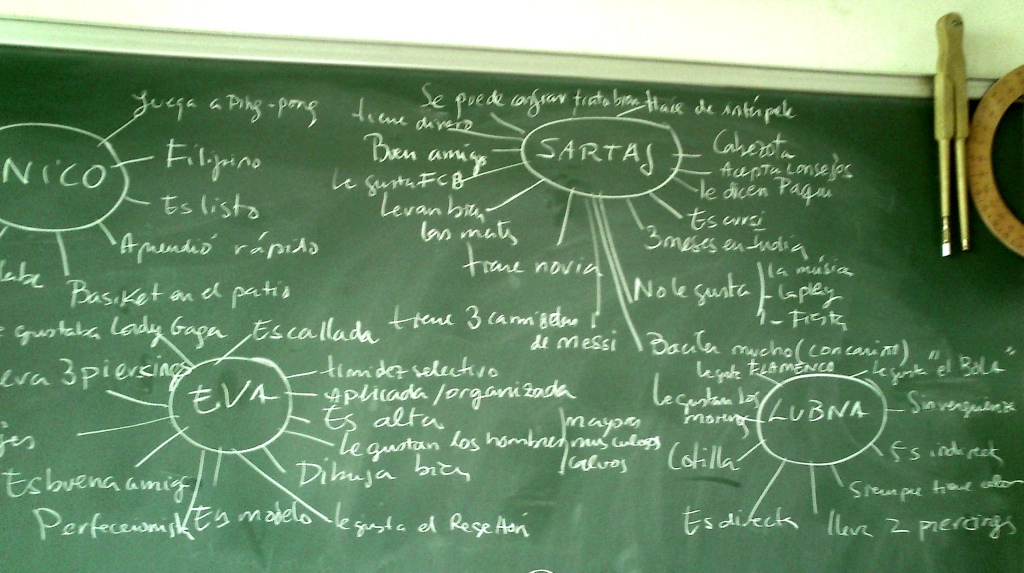 NICO
Juega a Ping-pong
Filipino
Es listo
Aprendió rápido
Basket en el patio
SARTAJ
Se puede confiar
trata bien
Hace de intérprete
tiene dinero
Bien amigo
le gusta FCB
Levan bien
las mats
tiene novia
tiene 3 camisetas
de Messi
Cabezota
Acepta consejos
le dicen Paqui
Es cursi
3 meses en India
No le gusta
la música
la play
- Fiesta
Bacila mucho (con cariño)
EVA
gustaba Lady Gaga
Es callada
3 piercings
timidez selectiva
Aplicada/organizada
Es alta
le gustan los hombres
mayores
musculosos
calvos
Dibuja bien
Es buena amiga
Perfeccionist
Es modelo
le gusta el Regetón
LUBNA
le gusta FLAMENCO
le gusta "el BOLA"
Le gustan los
morenos
Sinvergüenza
Cotilla
Es indirecta
Siempre tiene calor
Es directa
lleva 2 piercings